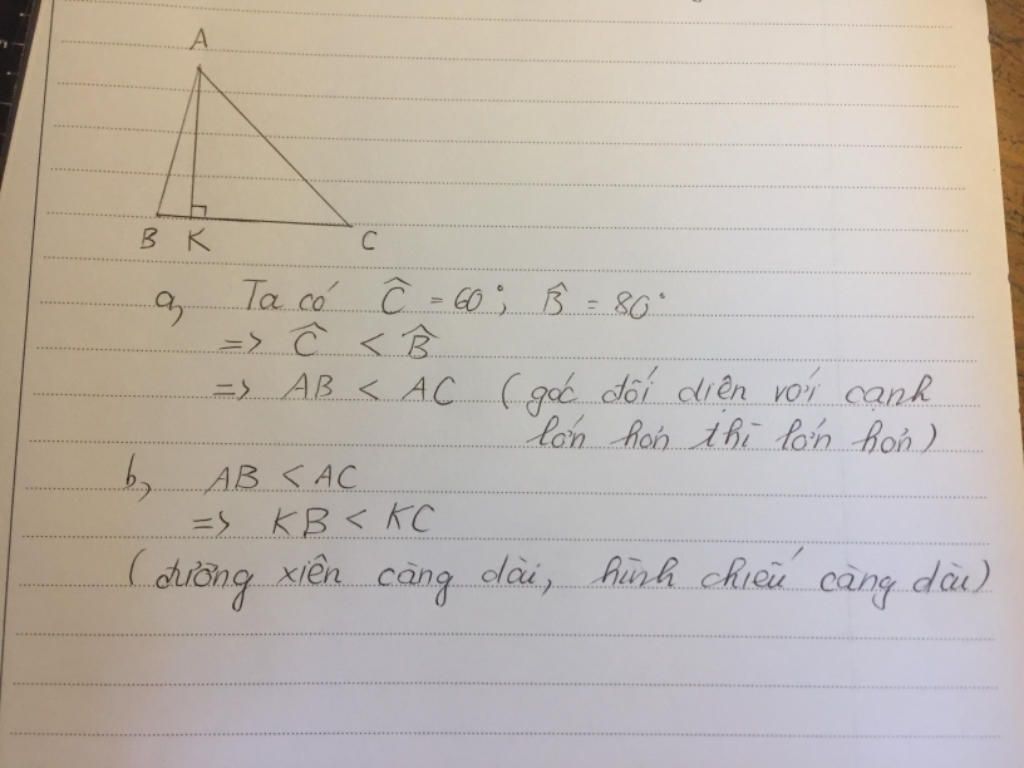 A
B K C
a, Ta có Ĉ = 60°; B̂ = 80°
=> Ĉ < B̂
=> AB < AC (góc đối diện với cạnh
lớn hơn thì lớn hơn)
b, AB < AC
=> KB < KC
(đường xiên càng dài, hình chiếu càng dài)